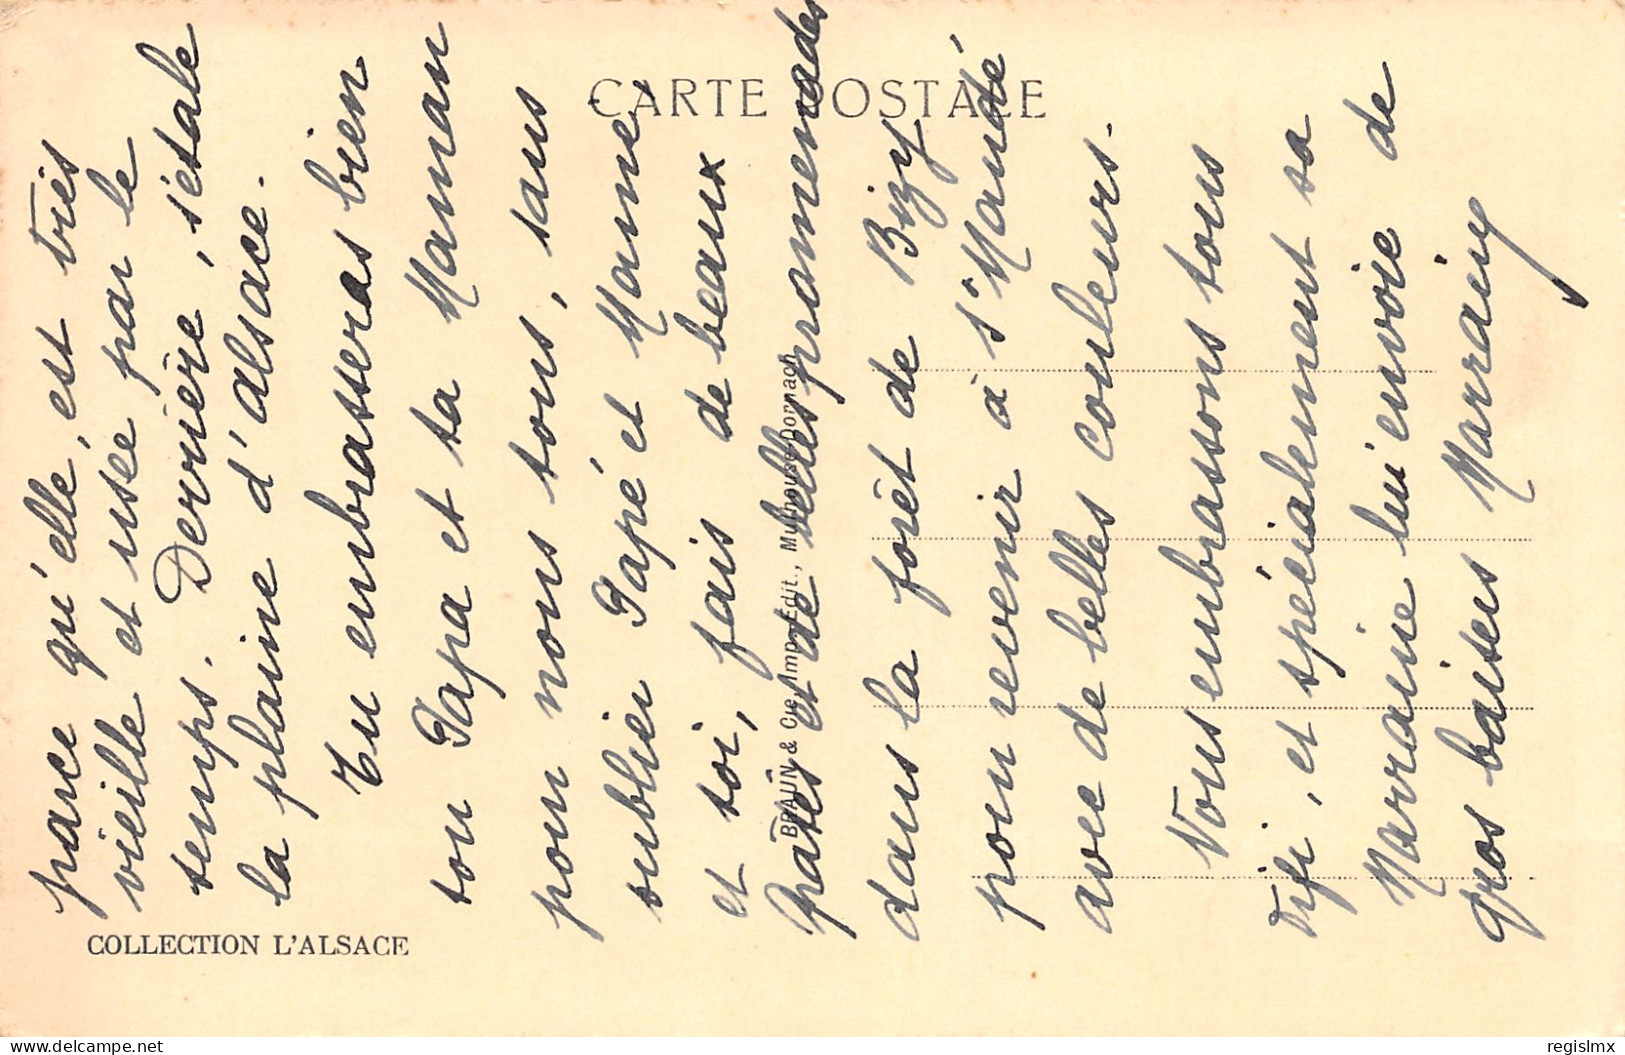 CARTE POSTALE
parce qu'elle, est très
vieille et usée par le
temps. Derrière, s'étale
la plaine d'alsace.
Tu embrasseras bien
ton Papa et ta Maman
pour nous tous, sans
oublier Papé et Mamé,
et toi, fais de beaux
pâtés et de belles promenades
dans la forêt de Bizy
pour revenir à St Mandé
avec de belles couleurs.
Vous embrassons tous
et spécialement sa
Marraine lui envoie de
gros baisers Marraine
BRAUN & Cie, Imp.-Édit., Mulhouse-Dornach
COLLECTION L'ALSACE
delcampe.net
regislmx